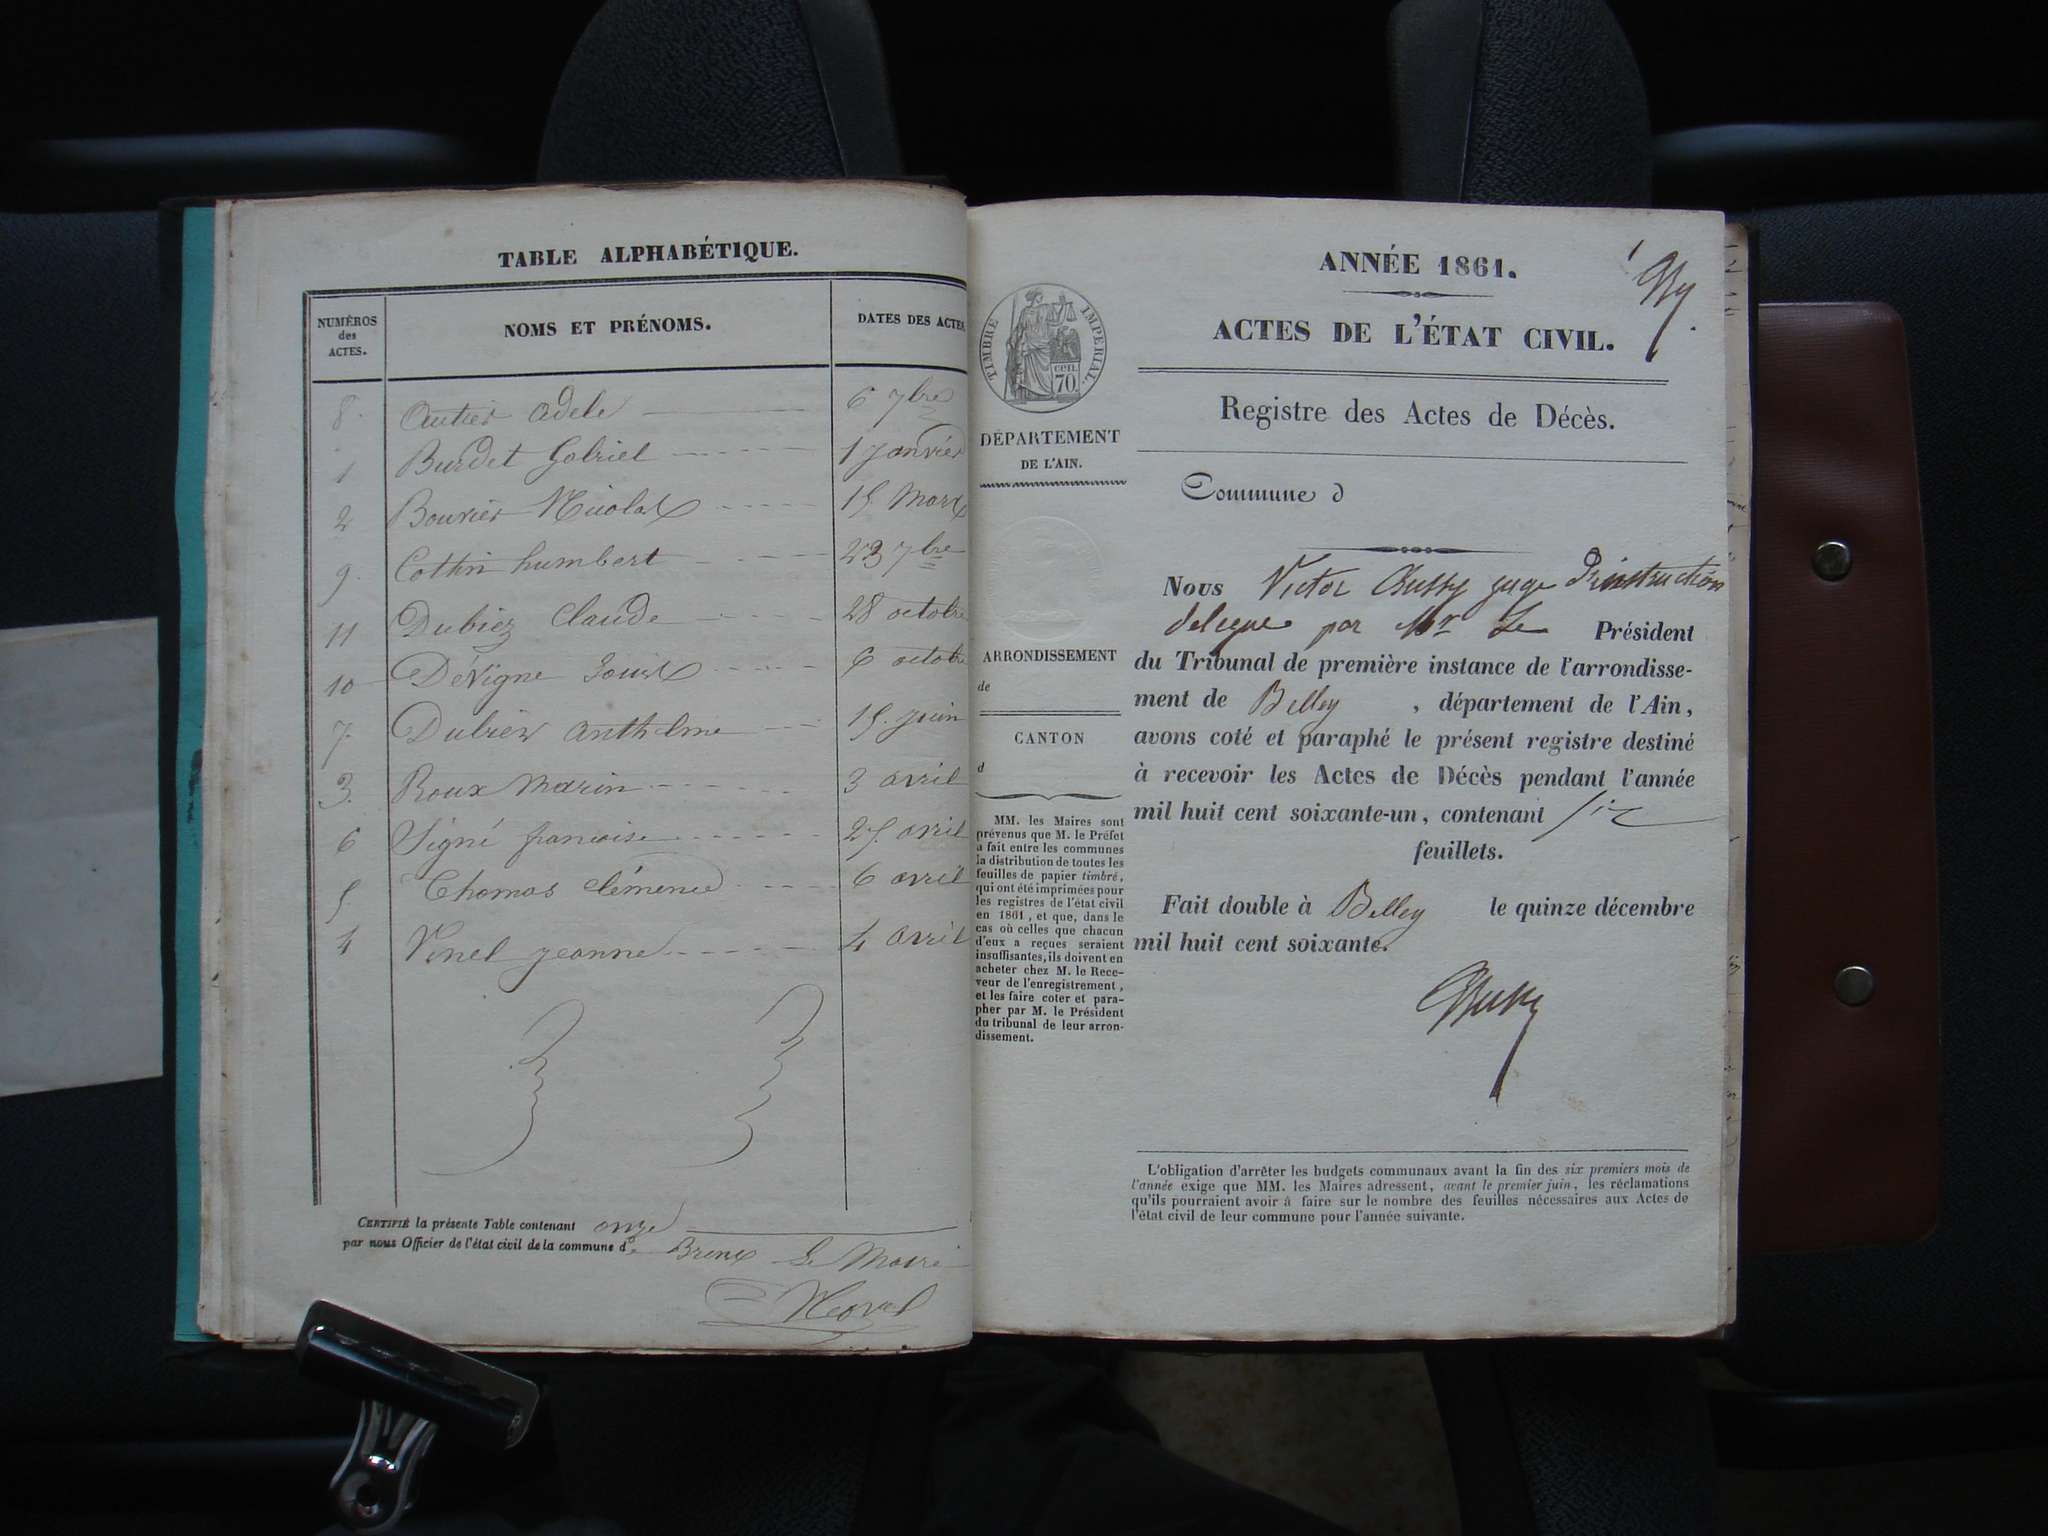 TABLE ALPHABÉTIQUE.
NUMÉROS des ACTES.
NOMS ET PRÉNOMS.
DATES DES ACTES
8. Autier adele 6 7bre
1 Burdet Gabriel 1 janvier
2 Bouvier Nicolas 15. Mars
9. Cottin humbert 23 7bre
11 Dubiez Claude 28 octobre
10 Dévigne Louis 6 octobre
7. Dubiez anthelme 15. juin
3. Roux Marin 3 avril
6 Signé francoise 25. avril
5. Thomas clémence 6 avril
4 Vinel jeanne 4 avril
CERTIFIÉ la présente Table contenant onze
par nous Officier de l'état civil de la commune de Brens Le Maire
ANNÉE 1861.
1
ACTES DE L'ÉTAT CIVIL.
Registre des Actes de Décès.
TIMBRE IMPÉRIAL.
cen. 70
DÉPARTEMENT
DE L'AIN.
ARRONDISSEMENT
de
CANTON
d
MM. les Maires sont
prévenus que M. le Préfet
a fait entre les communes
la distribution de toutes les
feuilles de papier timbré,
qui ont été imprimées pour
les registres de l'état civil
en 1861, et que, dans le
cas où celles que chacun
d'eux a reçues seraient
insuffisantes, ils doivent en
acheter chez M. le Rece-
veur de l'enregistrement,
et les faire coter et para-
pher par M. le Président
du tribunal de leur arron-
dissement.
Commune d
Nous Victor juge D'instruction
delegue par Mr Le Président
du Tribunal de première instance de l'arrondisse-
ment de Belley , département de l'Ain,
avons coté et paraphé le présent registre destiné
à recevoir les Actes de Décès pendant l'année
mil huit cent soixante-un, contenant six
feuillets.
Fait double à Belley le quinze décembre
mil huit cent soixante.
L'obligation d'arrêter les budgets communaux avant la fin des six premiers mois de
l'année exige que MM. les Maires adressent, avant le premier juin, les réclamations
qu'ils pourraient avoir à faire sur le nombre des feuilles nécessaires aux Actes de
l'état civil de leur commune pour l'année suivante.